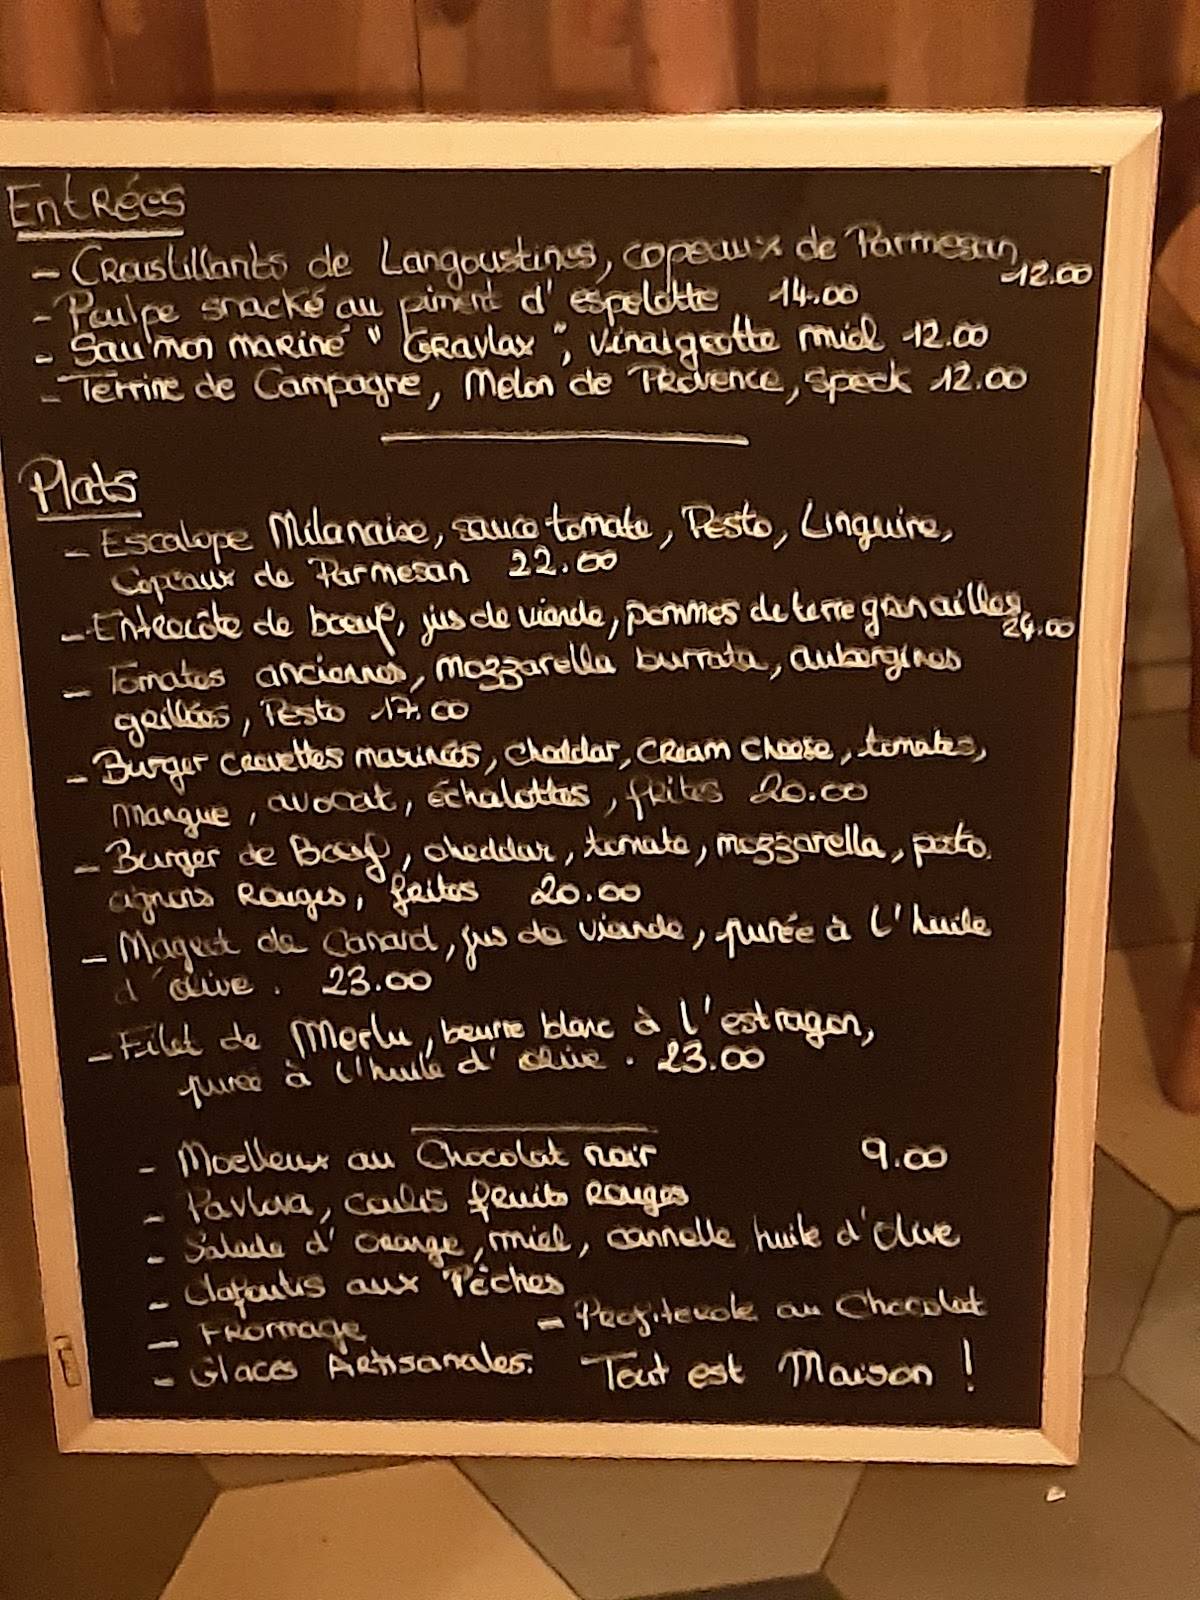 Entrées
- Croustillants de Langoustines, copeaux de Parmesan 12.00
- Poulpe snacké au piment d'espelette 14.00
- Saumon mariné "Gravlax", vinaigrette miel 12.00
- Terrine de Campagne, Melon de Provence, speck 12.00
Plats
- Escalope Milanaise, sauce tomate, Pesto, Linguine,
Copeaux de Parmesan 22.00
- Entrecôte de boeuf, jus de viande, pommes de terre grenailles 24.00
- Tomates anciennes, mozzarella burrata, aubergines
grillées, Pesto 17.00
- Burger crevettes marinées, cheddar, cream cheese, tomates,
mangue, avocat, échalottes, frites 20.00
- Burger de Boeuf, cheddar, tomate, mozzarella, pesto,
oignons Rouges, frites 20.00
- Magret de Canard, jus de viande, purée à l'huile
d'olive. 23.00
- Filet de Merlu, beurre blanc à l'estragon,
purée à l'huile d'olive. 23.00
- Moelleux au Chocolat noir 9.00
- Pavlova, coulis fruits Rouges
- Salade d'orange, miel, cannelle, huile d'olive
- Clafoutis aux Pêches
- Fromage - Profiterole au Chocolat
- Glaces Artisanales. Tout est Maison !